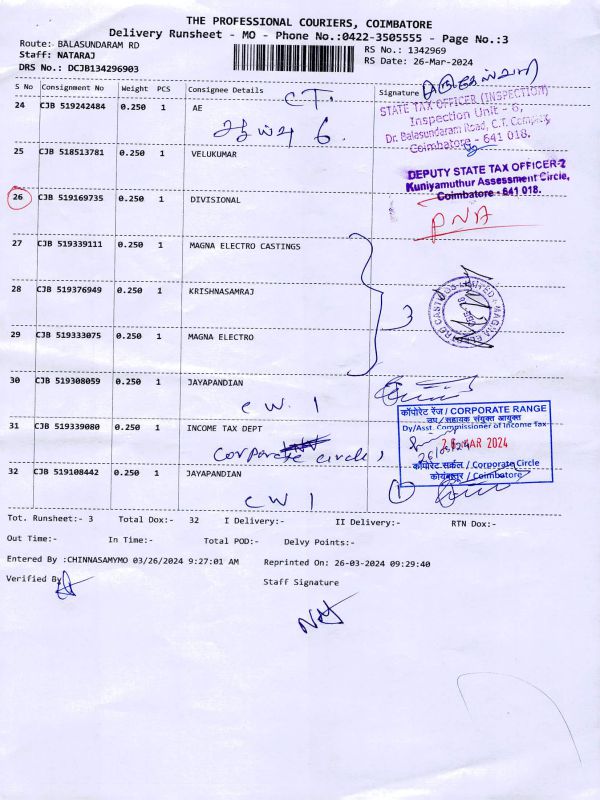 THE PROFESSIONAL COURIERS, COIMBATORE
Delivery Runsheet - MO - Phone No.:0422-3505555 - Page No.:3
Route: BALASUNDARAM RD
RS No.: 1342969
Staff: NATARAJ
RS Date: 26-Mar-2024
DRS No.: DCJB134296903
S No Consignment No Weight PCS Consignee Details Signature
C.T.
24 CJB 519242484 0.250 1 AE
6
STATE TAX OFFICER (INSPECTION)
Inspection Unit - 6,
Dr. Balasundaram Road, C.T. Complex,
Coimbatore - 641 018.
25 CJB 518513781 0.250 1 VELUKUMAR
DEPUTY STATE TAX OFFICER-2
Kuniyamuthur Assessment Circle,
Coimbatore - 641 018.
26 CJB 519169735 0.250 1 DIVISIONAL
PNA
27 CJB 519339111 0.250 1 MAGNA ELECTRO CASTINGS
28 CJB 519376949 0.250 1 KRISHNASAMRAJ
3
29 CJB 519333075 0.250 1 MAGNA ELECTRO
30 CJB 519308059 0.250 1 JAYAPANDIAN
C W. 1
कॉर्पोरेट रेंज / CORPORATE RANGE
उप / सहायक संयुक्त आयुक्त
Dy/Asst. Commissioner of Income Tax
31 CJB 519339080 0.250 1 INCOME TAX DEPT
26 MAR 2024
26/03/24
Corporate circle 1
कॉर्पोरेट सर्कल / Corporate Circle
कोयंबत्तूर / Coimbatore
32 CJB 519108442 0.250 1 JAYAPANDIAN
C W 1
1
Tot. Runsheet:- 3 Total Dox:- 32 I Delivery:- II Delivery:- RTN Dox:-
Out Time:- In Time:- Total POD:- Delvy Points:-
Entered By :CHINNASAMYMO 03/26/2024 9:27:01 AM Reprinted On: 26-03-2024 09:29:40
Verified By
Staff Signature